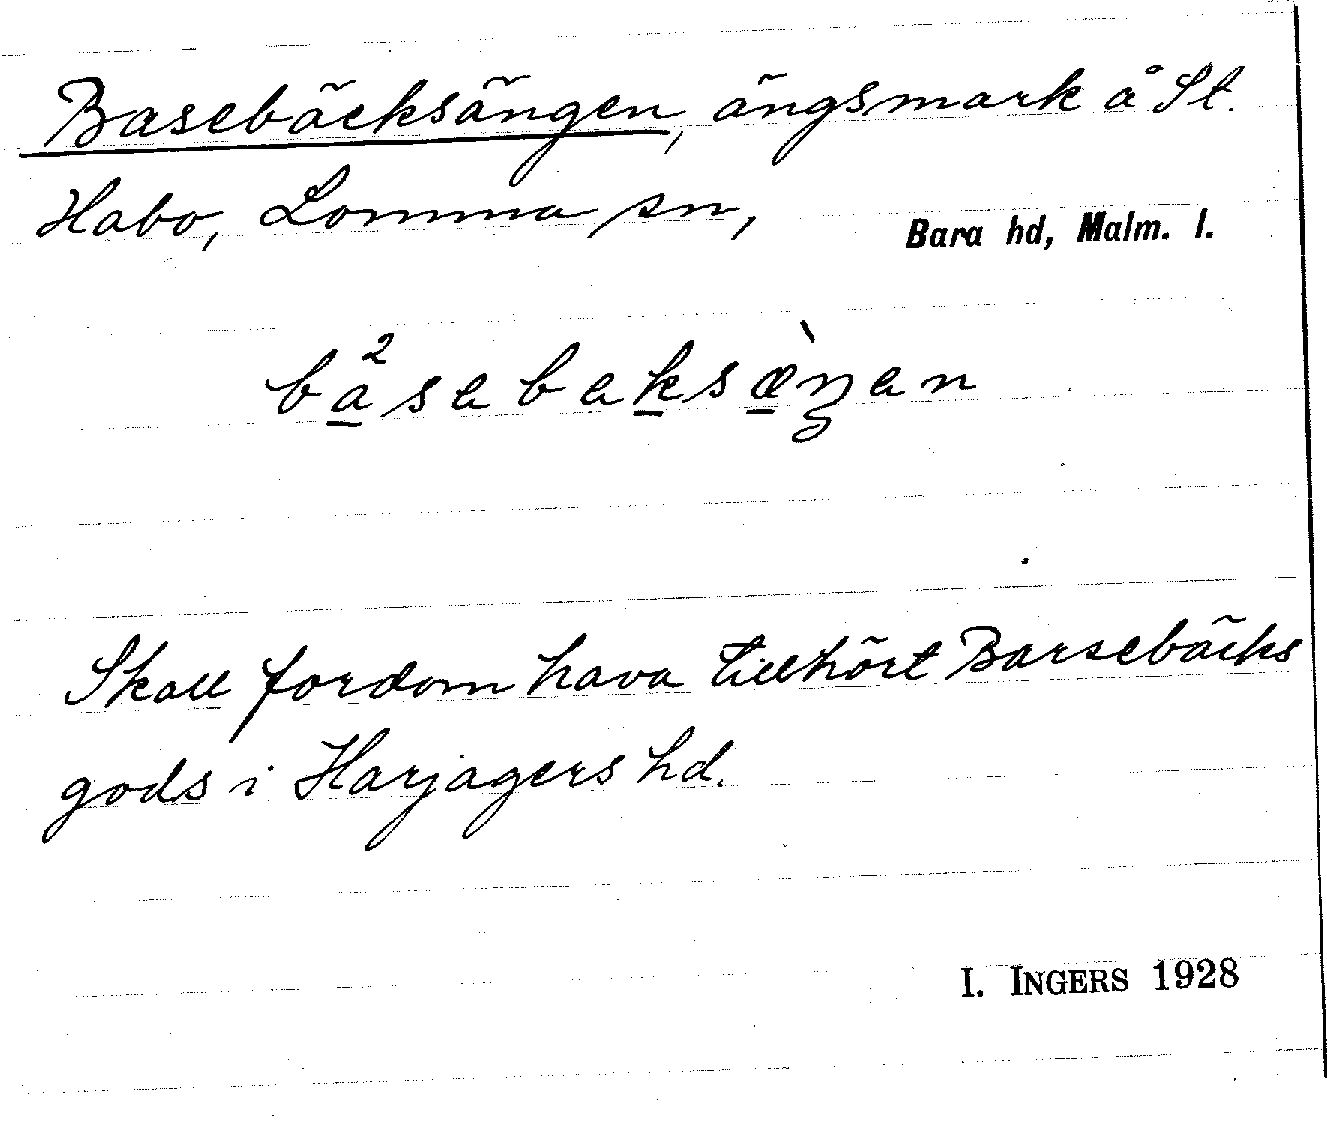 Basebäcksängen, ängsmark å St.
Habo, Lomma sn, Bara hd, Malm. l.
Skall fordom hava tillhört Barsebäcks
gods i Harjagers hd.
I. INGERS 1928